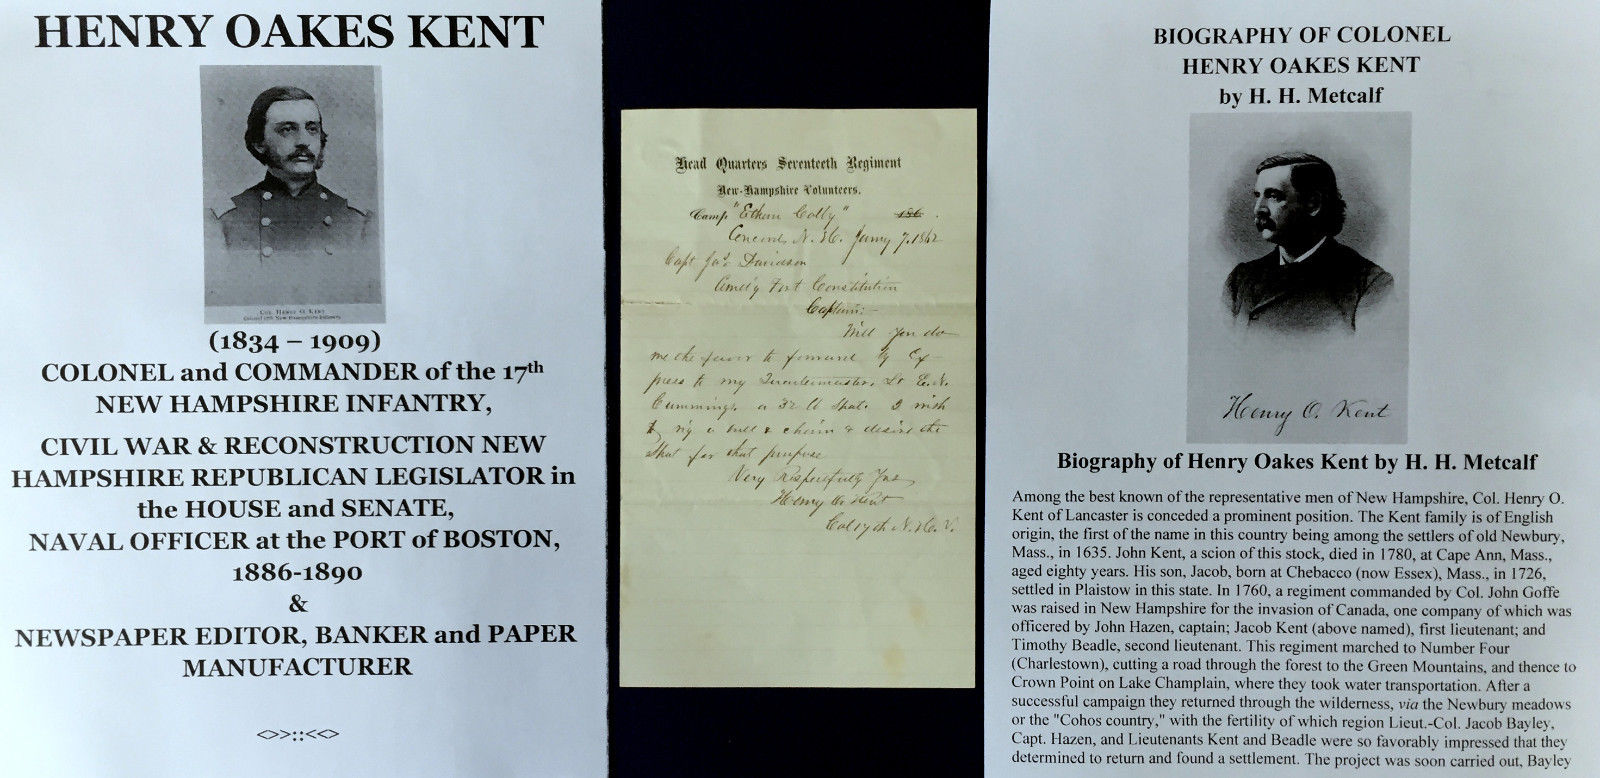 HENRY OAKES KENT
COL. HENRY O. KENT
Colonel 17th New Hampshire Infantry
(1834 – 1909)
COLONEL and COMMANDER of the 17th
NEW HAMPSHIRE INFANTRY,
CIVIL WAR & RECONSTRUCTION NEW
HAMPSHIRE REPUBLICAN LEGISLATOR in
the HOUSE and SENATE,
NAVAL OFFICER at the PORT of BOSTON,
1886-1890
&
NEWSPAPER EDITOR, BANKER and PAPER
MANUFACTURER
<>>::<<>
Head Quarters Seventeeth Regiment
New-Hampshire Volunteers.
Camp "Ethan Colby" 186 .
Concord, N. H. Jany 7. 1862
Capt Jas Davidson
Comd'g Fort Constitution
Captain:-
Will you do
me the favor to forward by Ex-
press to my Quartermaster, Lt E. N.
Cummings, a 32 lb Shot. I wish
to rig a ball & chain & desire the
Shot for that purpose
Very Respectfully Yrs
Henry O. Kent
Col 17th N. H. V.
BIOGRAPHY OF COLONEL
HENRY OAKES KENT
by H. H. Metcalf
Henry O. Kent
Biography of Henry Oakes Kent by H. H. Metcalf
Among the best known of the representative men of New Hampshire, Col. Henry O.
Kent of Lancaster is conceded a prominent position. The Kent family is of English
origin, the first of the name in this country being among the settlers of old Newbury,
Mass., in 1635. John Kent, a scion of this stock, died in 1780, at Cape Ann, Mass.,
aged eighty years. His son, Jacob, born at Chebacco (now Essex), Mass., in 1726,
settled in Plaistow in this state. In 1760, a regiment commanded by Col. John Goffe
was raised in New Hampshire for the invasion of Canada, one company of which was
officered by John Hazen, captain; Jacob Kent (above named), first lieutenant; and
Timothy Beadle, second lieutenant. This regiment marched to Number Four
(Charlestown), cutting a road through the forest to the Green Mountains, and thence to
Crown Point on Lake Champlain, where they took water transportation. After a
successful campaign they returned through the wilderness, via the Newbury meadows
or the "Cohos country," with the fertility of which region Lieut.-Col. Jacob Bayley,
Capt. Hazen, and Lieutenants Kent and Beadle were so favorably impressed that they
determined to return and found a settlement. The project was soon carried out, Bayley